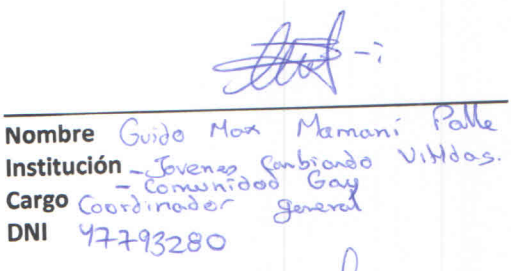 Nombre Guido Max Mamani Palle
Institución - Jovenes Cambiando ViHdas.
- Comunidad Gay
Cargo Coordinador general
DNI 47793280